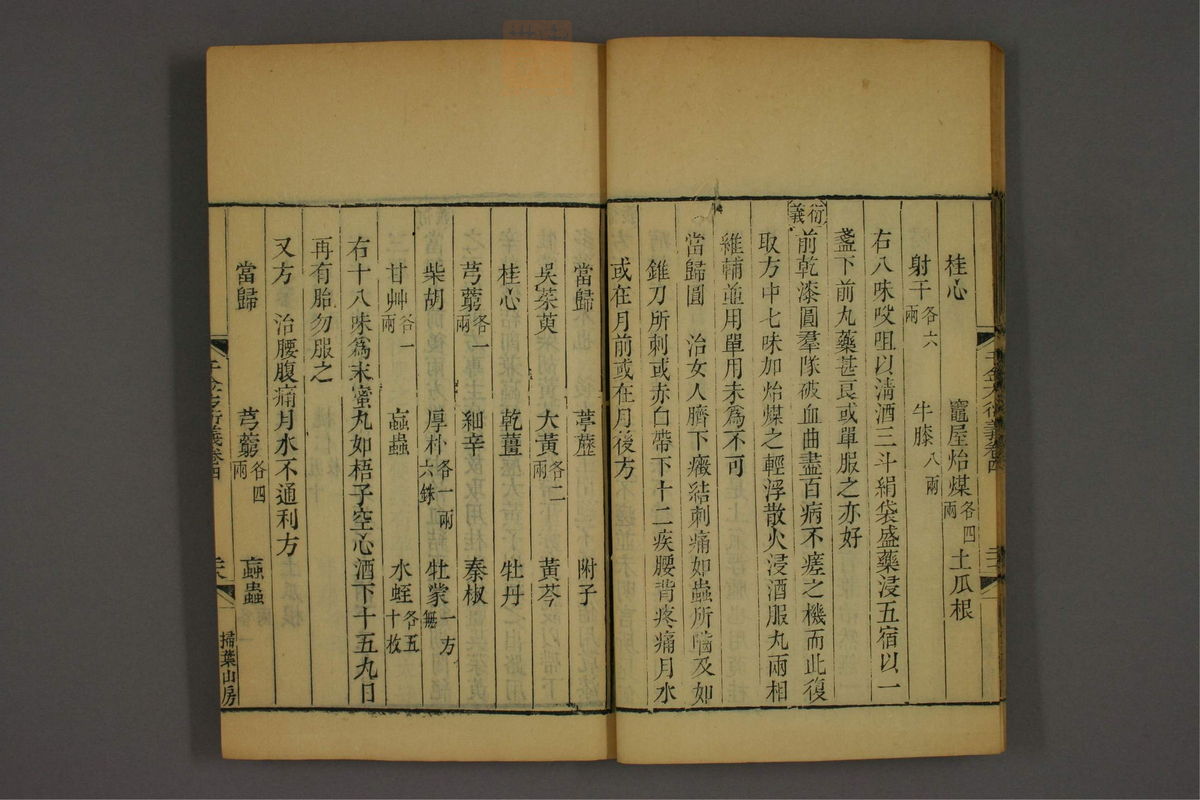 桂心 竈屋炲煤各四兩 土瓜根
射干各六兩 牛膝八兩
右八味㕮咀以清酒三斗絹袋盛藥浸五宿以一
盞下前丸藥甚良或單服之亦好
衍義
前乾漆圓羣隊破血曲盡百病不瘥之機而此復
取方中七味加炲煤之輕浮散火浸酒服丸兩相
維輔並用單用未為不可
當歸圓 治女人臍下癥結刺痛如蟲所嚙及如
錐刀所刺或赤白帶下十二疾腰背疼痛月水
或在月前或在月後方
當歸 葶藶 附子
吳茱萸 大黃各二兩 黃芩
桂心 乾薑 牡丹
芎藭各一兩 細辛 秦椒
柴胡 厚朴各一兩六銖 牡蒙一方無
甘艸各一兩 䖟蟲 水蛭各五十枚
右十八味為末蜜丸如梧子空心酒下十五丸日
再有胎勿服之
又方 治腰腹痛月水不通利方
當歸 芎藭各四兩 䖟蟲
千金方衍義卷四
掃葉山房